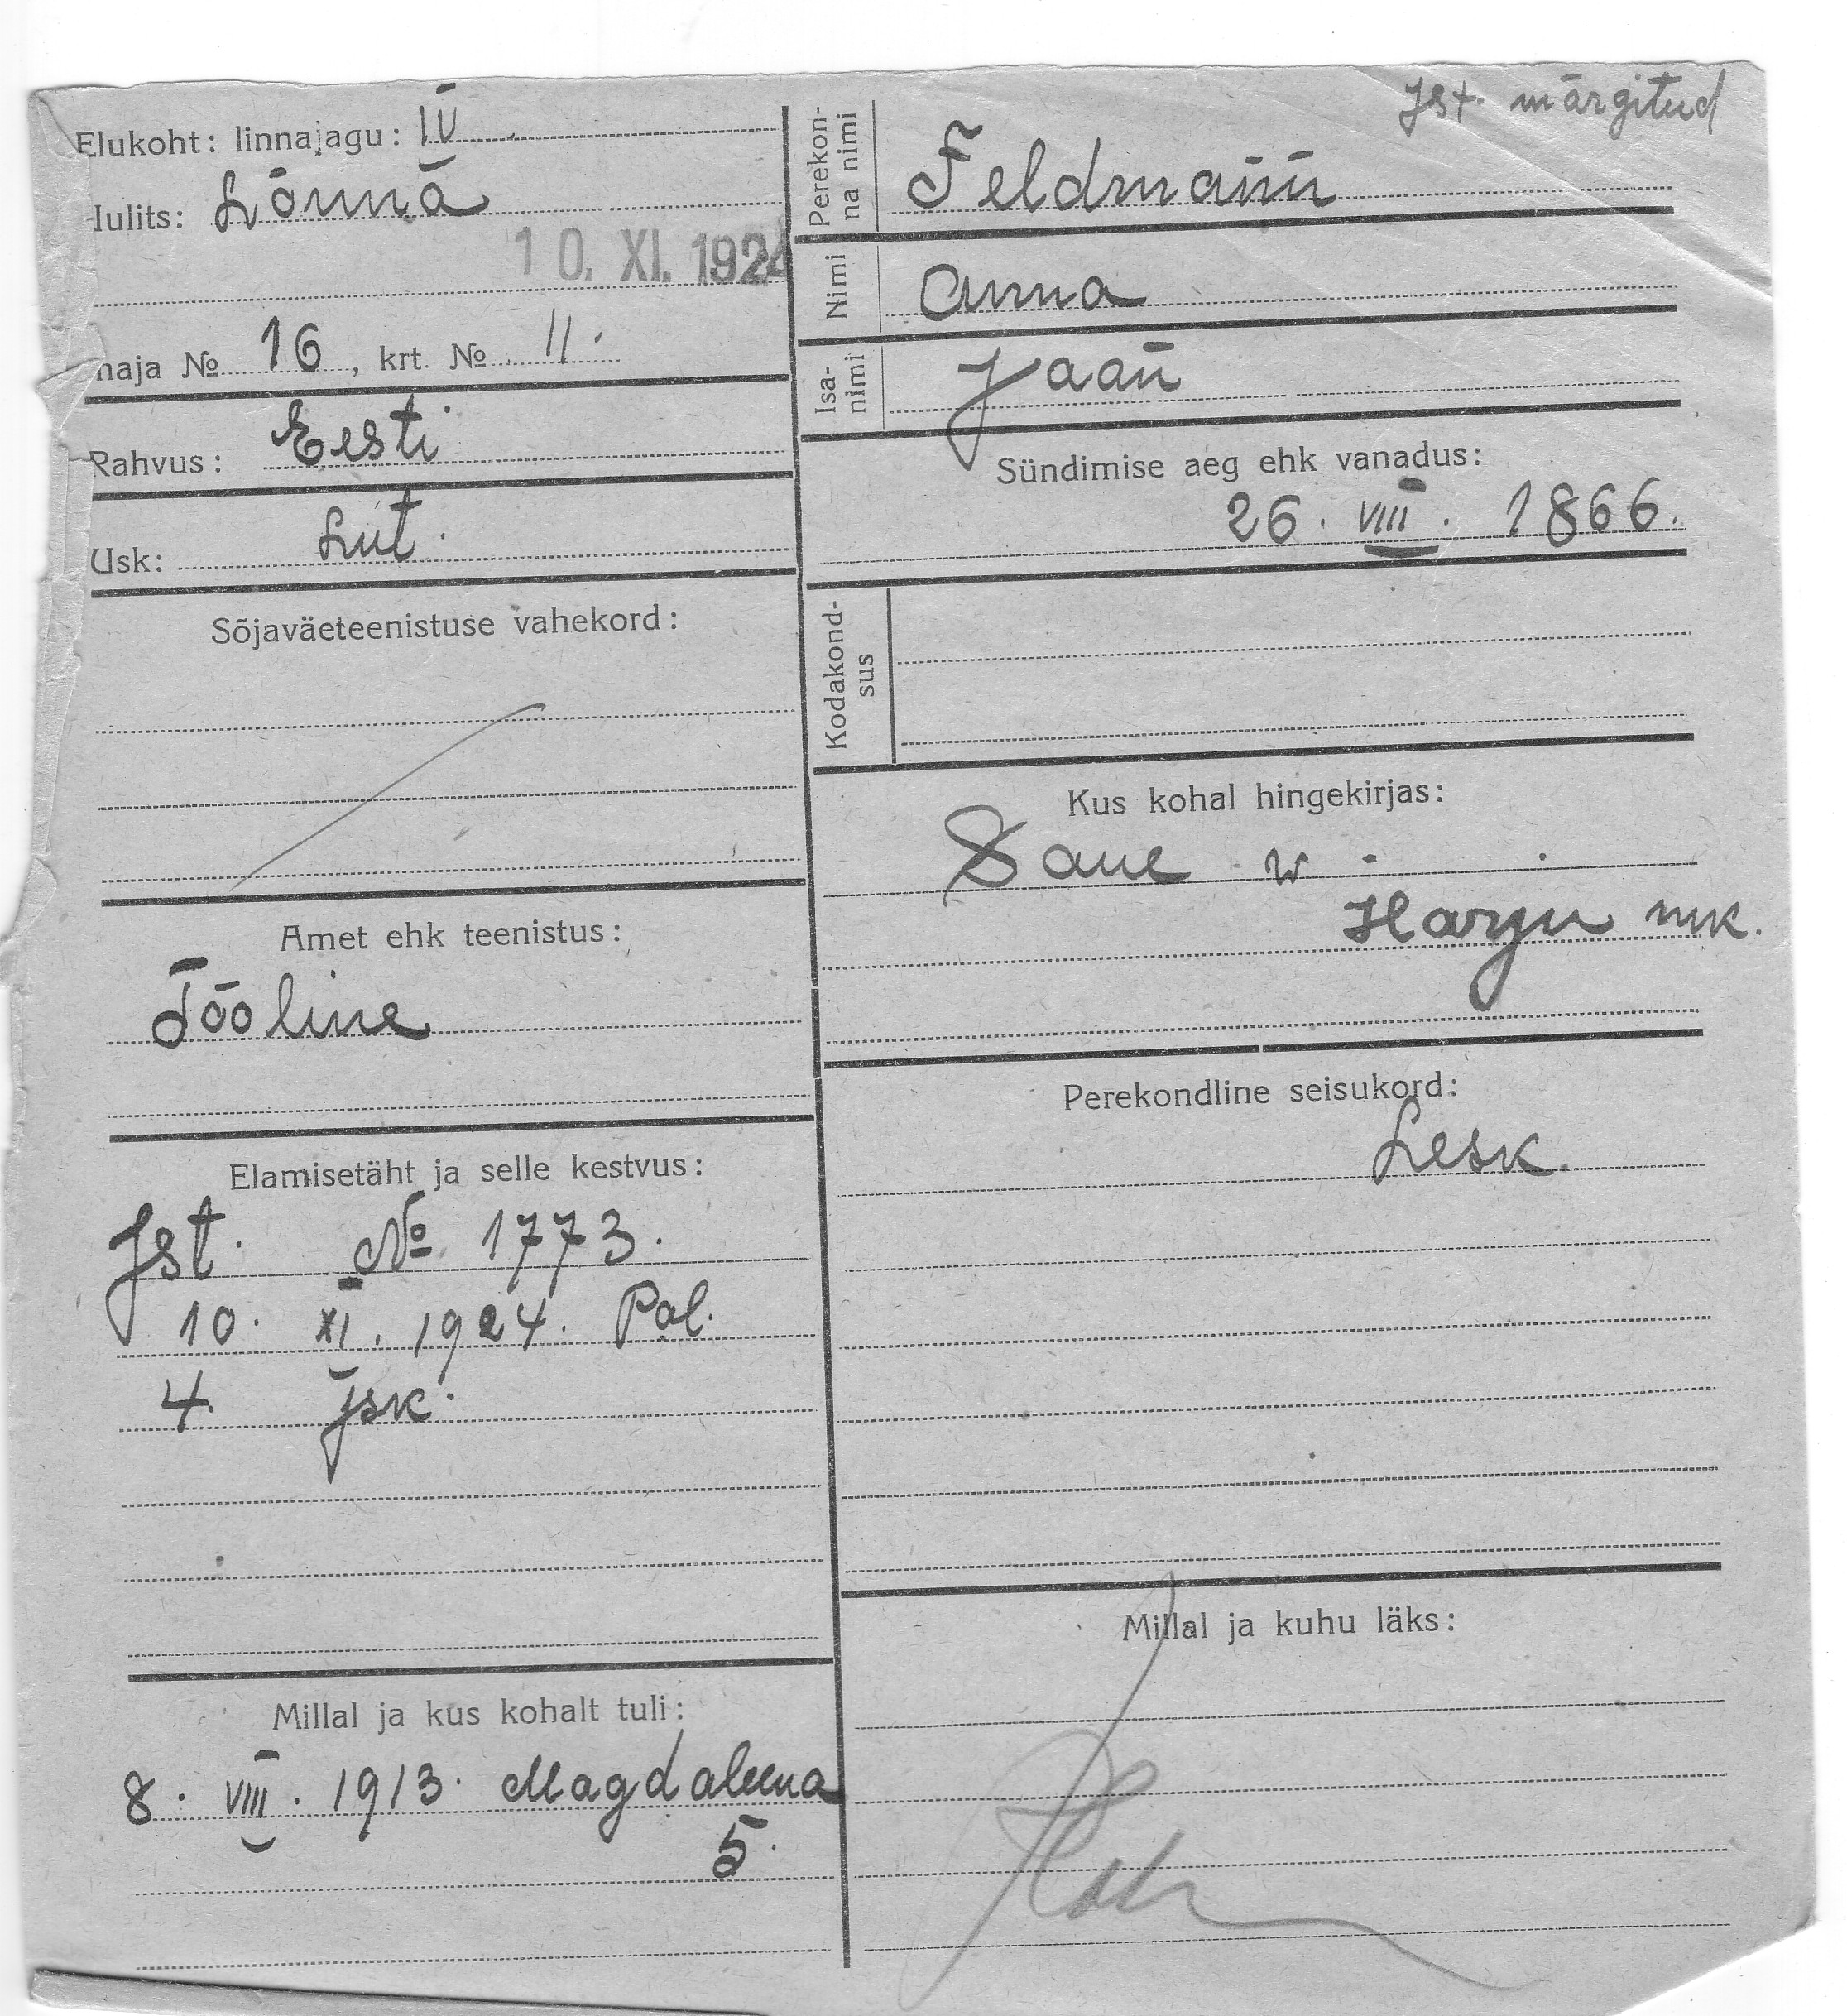 Jst. märgitud
Elukoht: linnajagu: IV
Iulits: Lõuna
10. XI. 1924
maja № 16, krt. № 11.
Rahvus: Eesti
Usk: Lut.
Sõjaväeteenistuse vahekord:
Amet ehk teenistus:
Tööline
Elamisetäht ja selle kestvus:
Jst. № 1773.
10. XI. 1924. Pol.
4. Jsk.
Millal ja kus kohalt tuli:
8. VIII. 1913. Magdaleena
5.
Perekon-
na nimi
Feldmann
Nimi Anna
Isa-
nimi
Jaan
Sündimise aeg ehk vanadus:
26. VIII. 1866.
Kodakond-
sus
Kus kohal hingekirjas:
Saue w.
Harju mk.
Perekondline seisukord:
Lesk.
Millal ja kuhu läks: